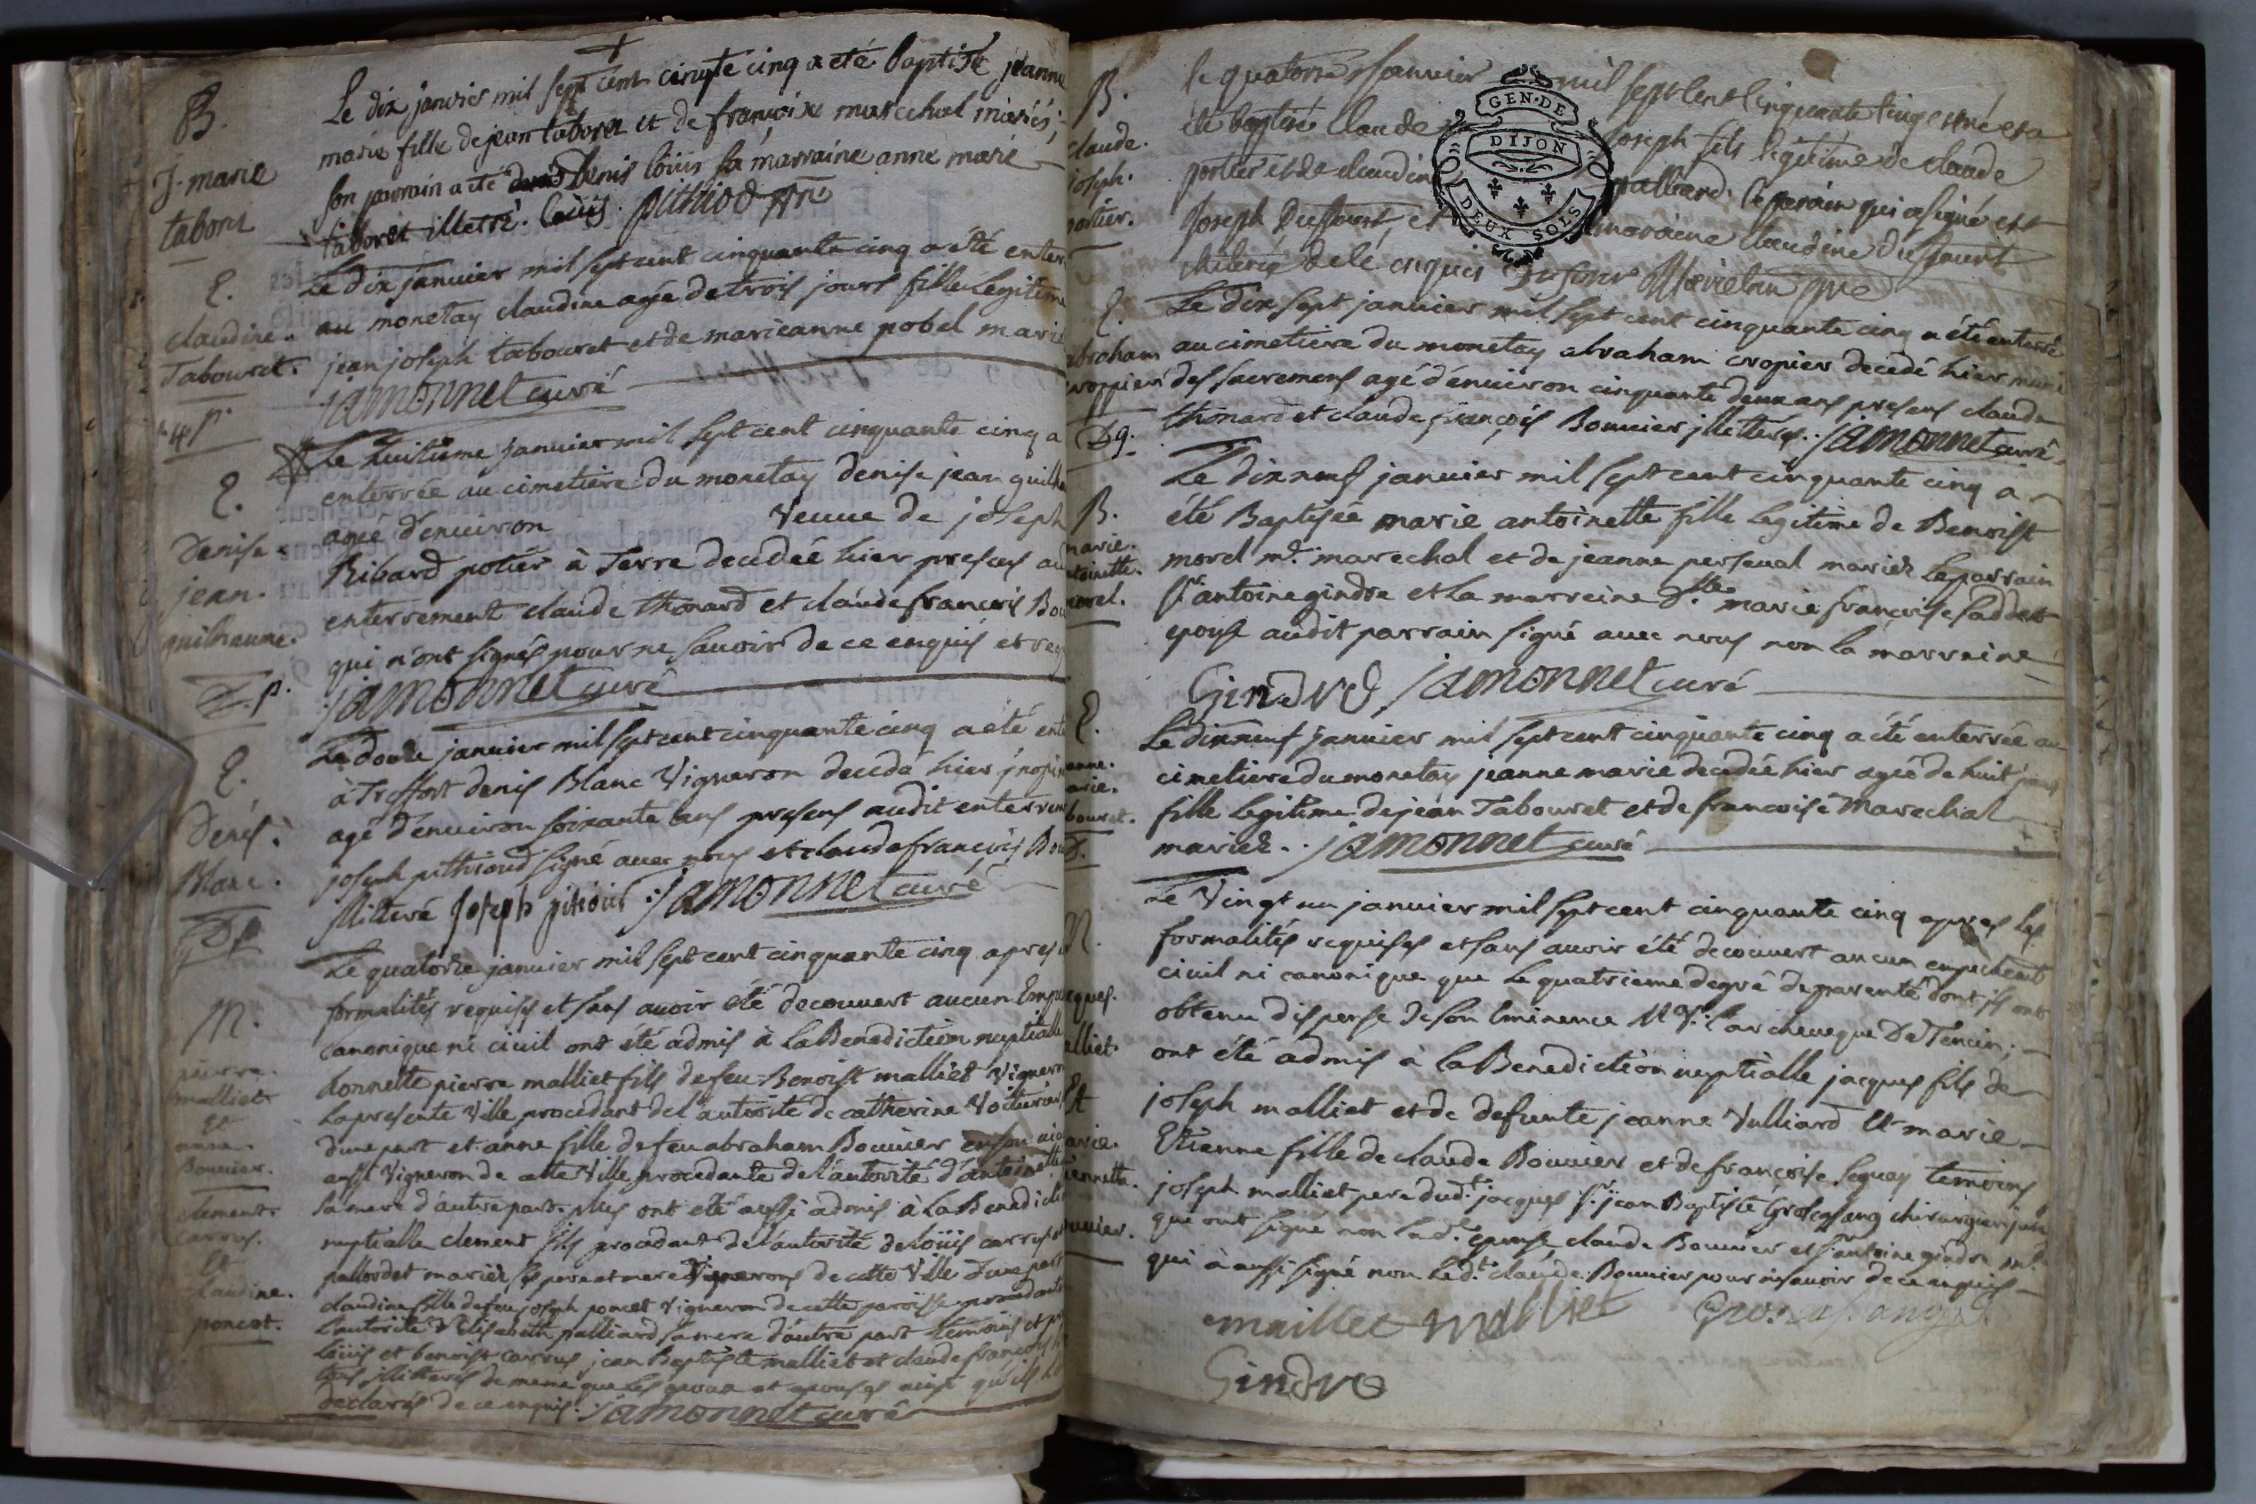 B.
J. marie
tabort
Le dix janvier mil sept cent cinqte cinq a eté Baptisé jeanne
marie fille de jean taboret et de françoise marechal mariés,
son parrain a été Denis loüis sa marraine anne marie
taboret illetré. loüis. pithiod
E.
claudine.
Tabouret.
Le dix janvier mil sept cent cinquante cinq a été enter
au monetay claudine agée de trois jours fille Legitime
jean joseph tabouret et de marieanne pobel marié
jamonnet curé
E.
Denise.
jean.
guilheaume.
Le huitieme janvier mil sept cent cinquante cinq a
enterrée au cimetiere du monetay denise jean guilhe
agée d'enuiron veuue de joseph
Ribard potier à Terre decedée hier presens au
enterrement claude thonard et claude françois Bou
qui n'ont signés pour ne sauoir de ce enquis et req
jamonnet curé
E.
Denis.
Blanc.
Le douze janvier mil sept cent cinquante cinq a été ente
à Treffort denis Blanc Vigneron decedé hier
agé d'enuiron soixante ans presens audit enterrem
joseph pithioud signé auec nous et claude françois Bou
illiteré Joseph pithiod jamonnet curé
M.
pierre.
malliet
Et
anne.
Bouuier.
clement.
carrus.
Et
claudine.
poncet.
Le quatorze janvier mil sept cent cinquante cinq apres
formalités requises et sans auoir été decouuert aucun Empe
canonique ni ciuil ont été admis à La Benediction nuptialle
donnette pierre malliet fils de feu Benoist malliet Vigneron
La presente Ville procedant de l'autorité de catherine
d'une part et anne fille de feu abraham Bouuier
aussi Vigneron de cette Ville procedante de l'autorité d'antoinette
sa mere d'autre part. plus ont eté aussi admis à La Benedictio
nuptialle clement fils procedant de l'autorité de loüis carrus
mariés ses pere et mere Vignerons de cette Ville d'une part
claudine fille de feu joseph poncet Vigneron de cette paroisse procedante
L'autorité d'Elisabeth palliard sa mere d'autre part temoins
Loüis et benoist carrus jean Baptiste malliet et claude françois
tous illiterés de meme que les epoux et epouses ainsi qu'ils
declarés de ce enquis. jamonnet curé
B.
claude.
joseph.
portier.
le quatorse januier mil sept cent cinquante cinq est né et a
été baptisé claude joseph fils légitime de claude
portier et de claudine palliard. le parain qui a signé est
joseph Dufour, et maraine claudine Dufour
de ce enquis Dufour
E.
abraham
croppier
Le dix sept januier mil sept cent cinquante cinq a été enterré
au cimetiere du monetay abraham cropier decedé hier muni
des sacremens agé d'enuiron cinquante deux ans presens claude
thonard et claude françois Bouuier illetterés. jamonnet curé
B.
marie.
antoinette.
morel.
Le dix neuf januier mil sept cent cinquante cinq a
été Baptisée marie antoinette fille Legitime de Benoist
morel md. marechal et de jeanne perseual mariés Le parrain
sr. antoine gindre et La marreine dlle. marie françoise
epouse audit parrain signé auec nous non la marreine
Gindre jamonnet curé
E.
Le dix neuf januier mil sept cent cinquante cinq a été enterrée au
cimetiere du monetay jeanne marie decedée hier agée de huit jours
fille Legitime de jean Tabouret et de francoise Marechal
mariés. jamonnet curé
M.
Le Vingt un januier mil sept cent cinquante cinq apres les
formalités requises et sans auoir été decouuert aucun empechemt
ciuil ni canonique que Le quatrieme degré de parenté dont ils ont
obtenu dispense de son Eminence l'archeueque De Tencin;
ont été admis à La Benediction nuptialle jacques fils de
joseph malliet et de defunte jeanne Vulliard Et marie
Etienne fille de claude Bouuier et de françoise Leguay temoins
joseph malliet pere dudt. jacques sr. jean Baptiste Groscassang chirurgien juré
qui ont signé non Lade. epouse claude Bouuier et sr antoine gindre md.
qui à aussi signé non Ledt. claude Bouuier pour ne sauoir de ce enquis
maillet malliet Groscassang
Gindre
GEN. DE
DIJON
DEUX SOLS